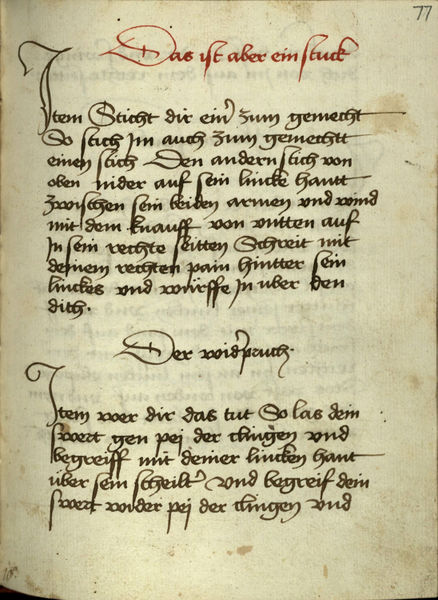 77
Das ist aber ein stuck
Item Sticht dir ein' zum gemecht
So stich Im auch zum gemechtt
einen stich Den andern stich von
oben nider auf sein lincke hantt
zwischen sein beiden armen und wind
mit dem knauff von untten auf
In sein rechte seitten Schreit mit
deinem rechten pain hintter sein
linckes und würffe In uber den
dich.
Der wid'pruch.
Item wer dir das tut So las dein
swert gen pej der clingen und
begreiff mit deiner lincken hant
über sein scheilt' und begreif dein
swert wider pej der clingen und